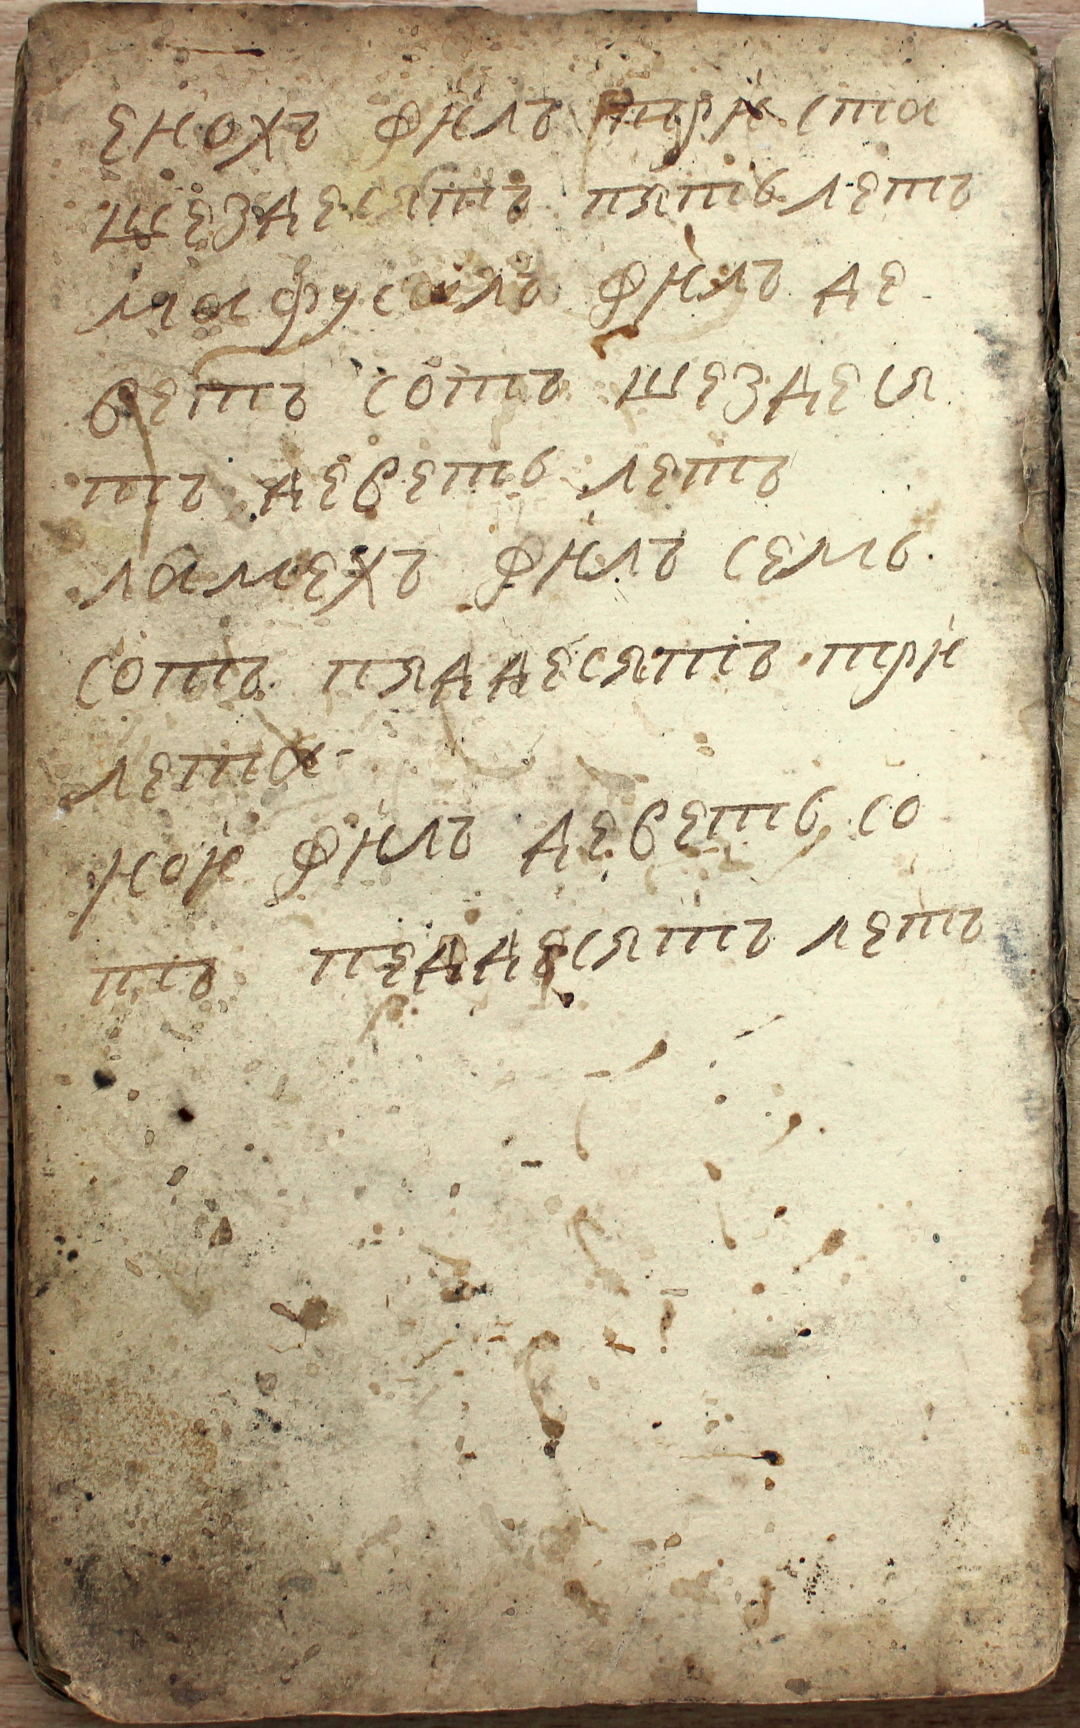 енохъ филъ три ста
шездесятъ пять летъ
мафусалъ филъ де
ветъ сотъ шездеся
тъ деветь летъ
ламехъ филъ семь
сотъ пяддесятъ три
лета
ной филъ деветь со
тъ педдесятъ летъ